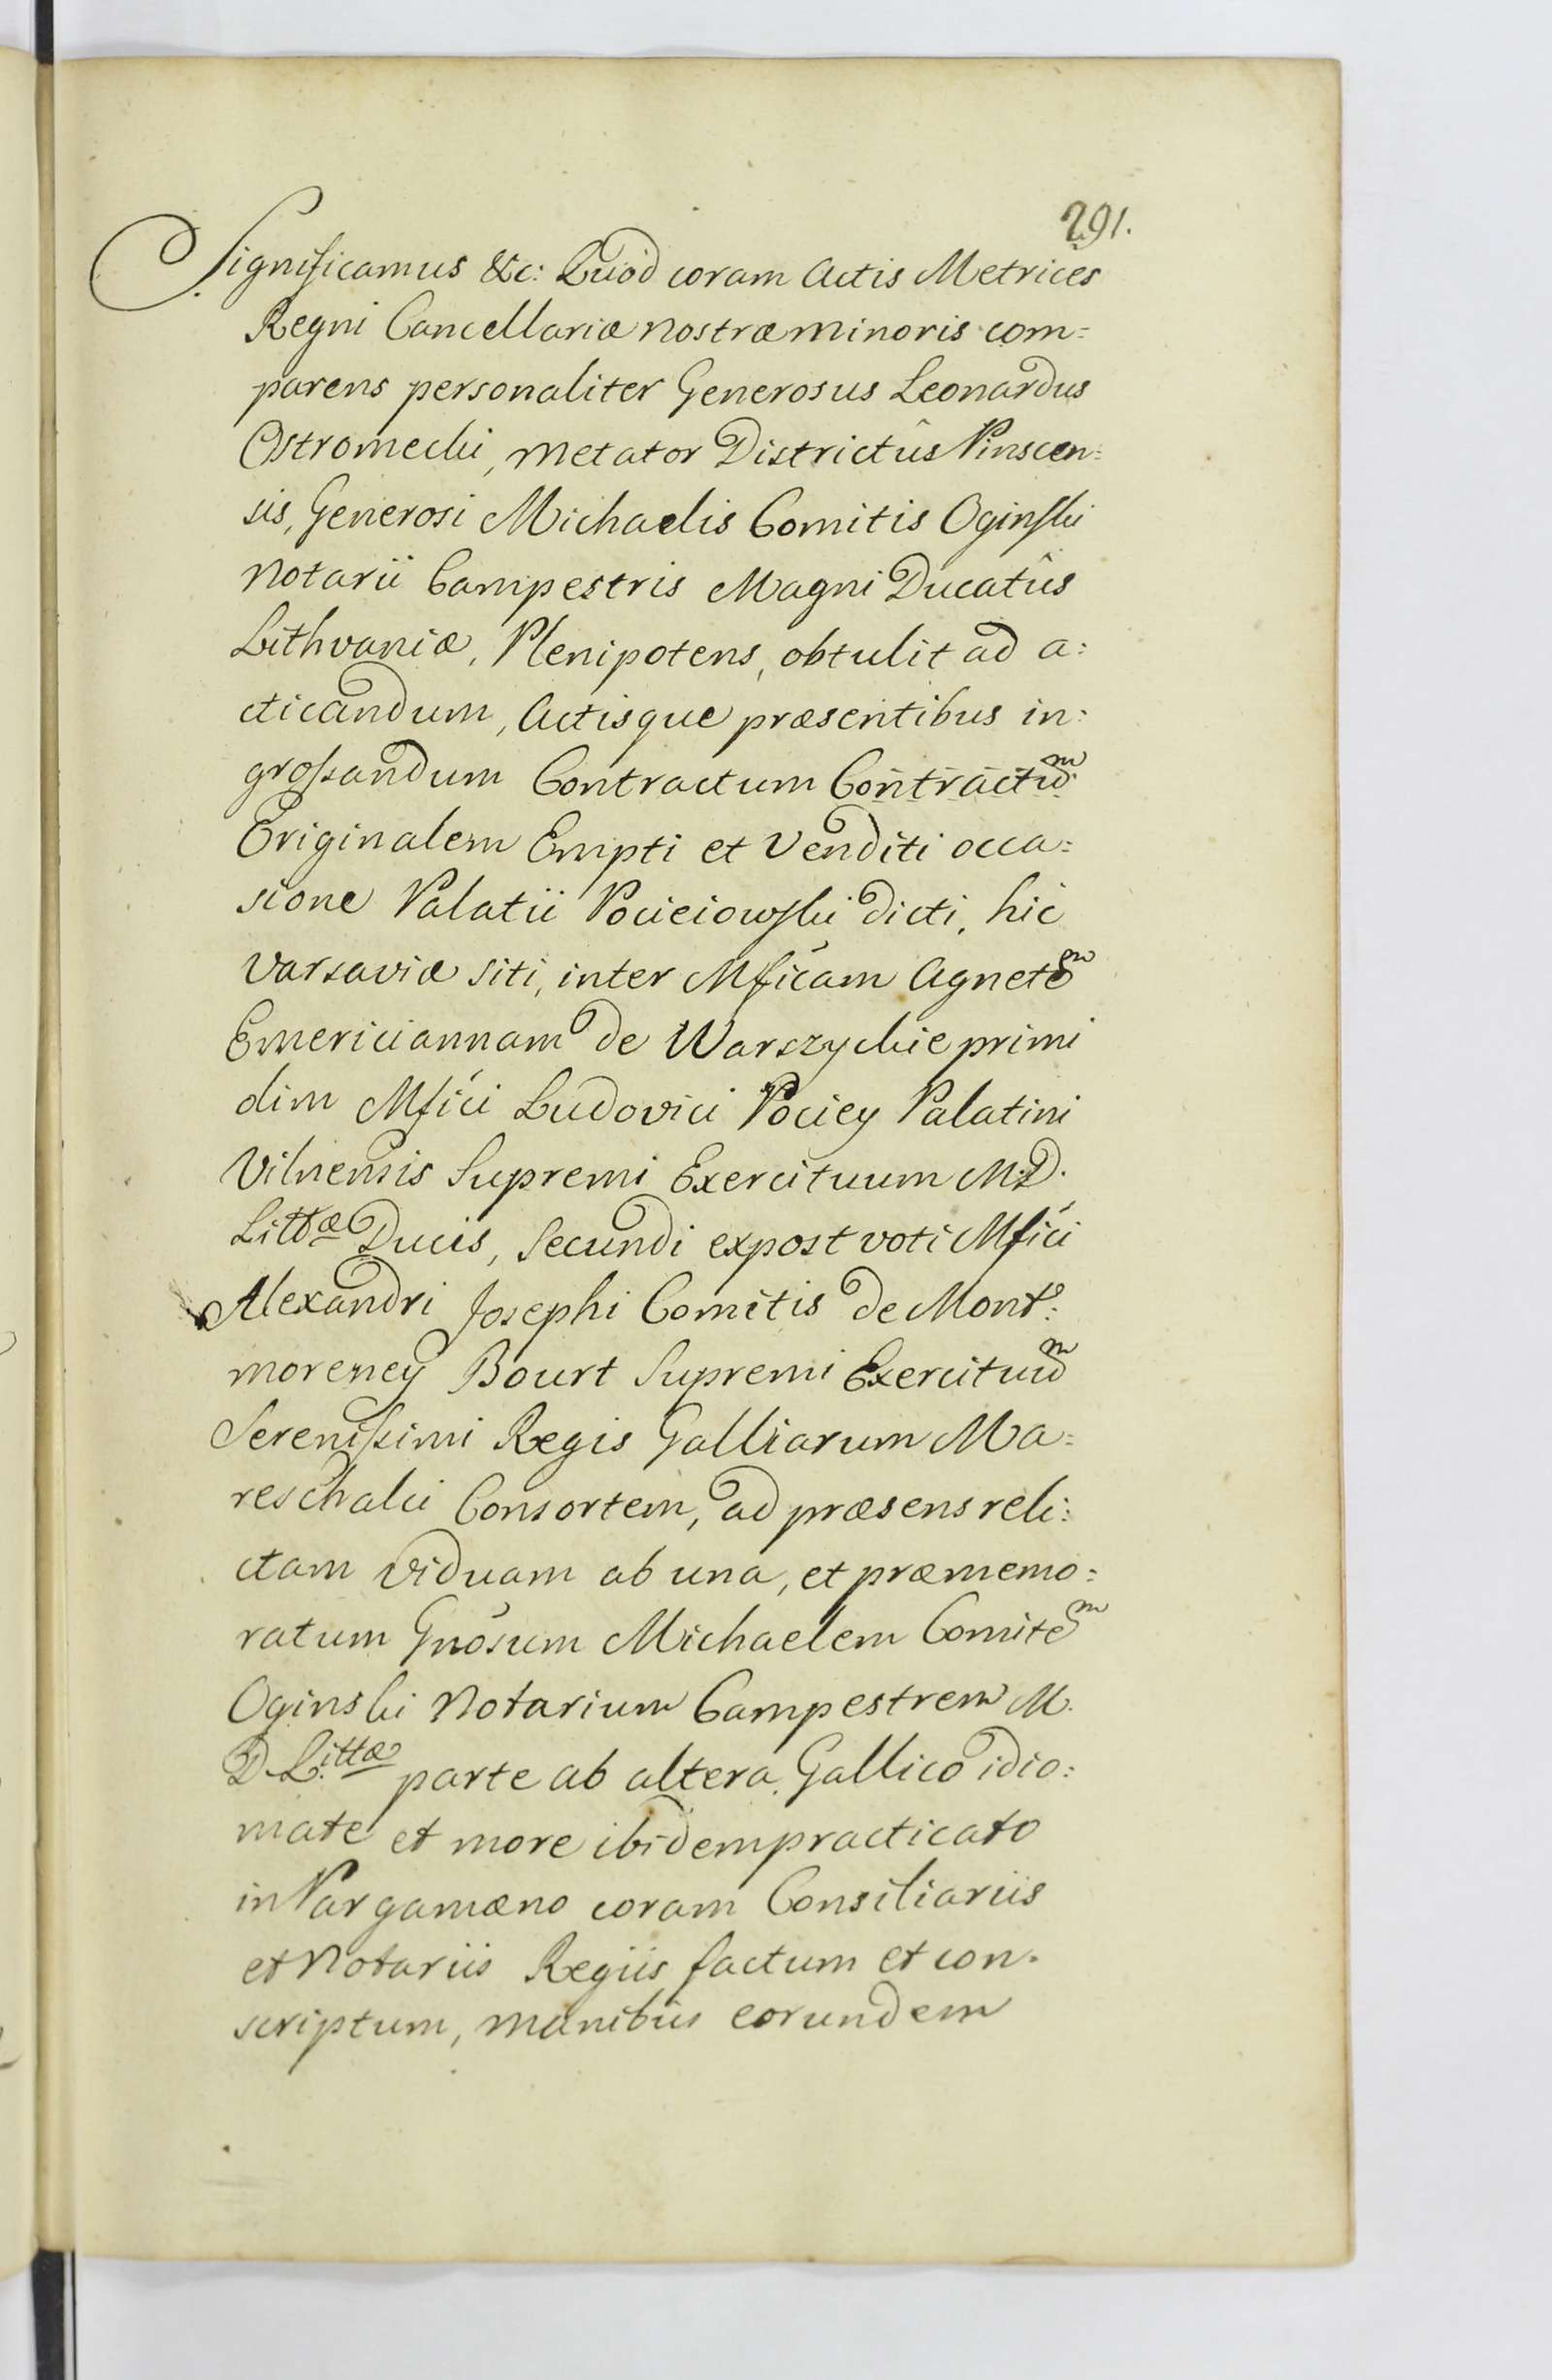 291.
Significamus &c: Quod coram Actis Metrices
Regni Cancellariæ nostræ minoris com=
parens personaliter Generosus Leonardus
Ostromecki, Metator Districtûs Pinscen=
sis, Generosi Michaelis Comitis Oginski
Notarii Campestris Magni Ducatûs
Lithvaniæ, Plenipotens, obtulit ad a=
cticandum, Actisque præsentibus in=
grossandum Contractum Contractum
Originalem Empti et Venditi occa=
sione Palatii Pocieiowski dicti, hic
Varsaviæ siti, inter Mficam Agnetem
Emericiannam de Warszyckie primi
olim Mfici Ludovici Pociey Palatini
Vilnensis Supremi Exercituum M.D.
Littæ Ducis, Secundi expost voti Mfici
Alexandri Josephi Comitis de Mont=
morency Bourt Supremi Exercituum
Serenissimi Regis Galliarum Ma=
reschalci Consortem, ad præsens reli=
ctam Viduam ab una, et præmemo=
ratum Gnosum Michaelem Comitem
Oginski Notarium Campestrem M.
D. Littæ parte ab altera. Gallico idio=
mate et more ibidem practicato
in Pargamæno coram Consiliariis
et Notariis Regiis factum et con=
scriptum, manibûs eorundem